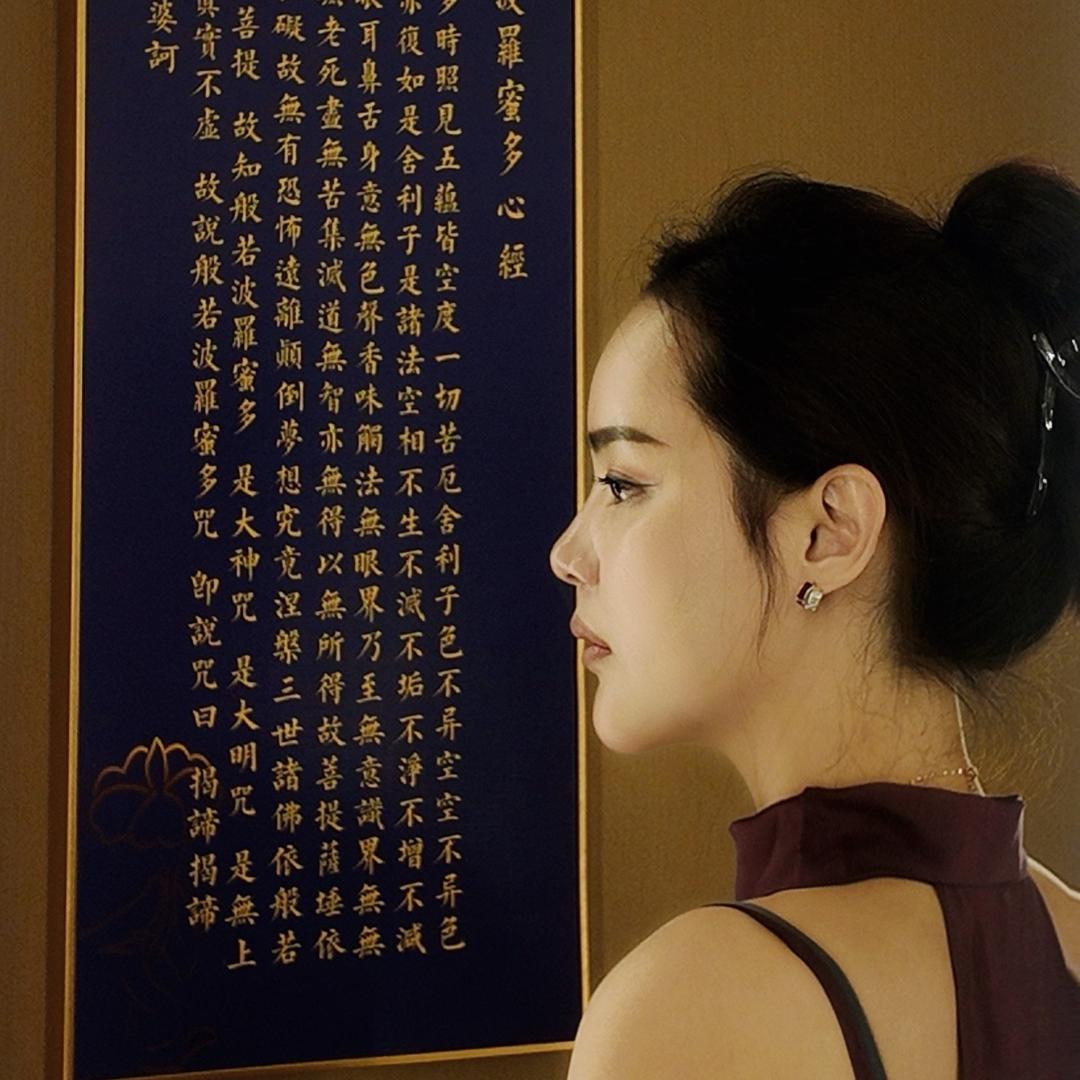 波羅蜜多心經
多時照見五蘊皆空度一切苦厄舍利子色不异空空不异色
亦復如是舍利子是諸法空相不生不滅不垢不淨不增不減
眼耳鼻舌身意無色聲香味觸法無眼界乃至無意識界無無
無老死盡無苦集滅道無智亦無得以無所得故菩提薩埵依
礙故無有恐怖遠離顛倒夢想究竟涅槃三世諸佛依般若
菩提 故知般若波羅蜜多 是大神咒 是大明咒 是無上
真實不虛 故說般若波羅蜜多咒 卽說咒曰 揭諦揭諦
婆訶